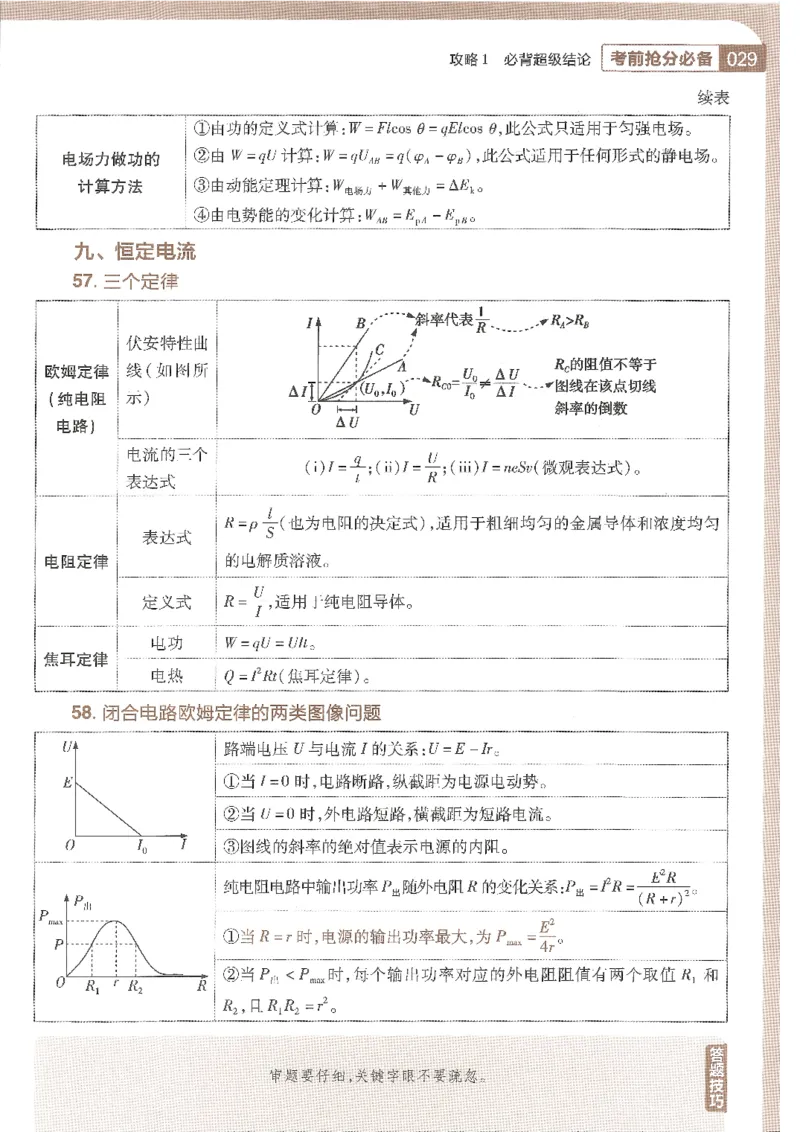 攻略1 必背超级结论 考前抢分必备 029
续表
电场力做功的
计算方法
①由功的定义式计算:W=Flcos θ=qElcos θ,此公式只适用于匀强电场。
②由 W=qU 计算:W=qU_AB=q(φ_A-φ_B),此公式适用于任何形式的静电场。
③由动能定理计算:W_电场力+W_其他力=ΔE_k。
④由电势能的变化计算:W_AB=E_pA-E_pB。
九、恒定电流
57. 三个定律
欧姆定律
(纯电阻
电路)
伏安特性曲
线(如图所
示)
I
B
C
A
ΔI
(U₀,I₀)
O
U
ΔU
斜率代表1/R
R_A>R_B
R_C0=U₀/I₀≠ΔU/ΔI
R_C的阻值不等于
图线在该点切线
斜率的倒数
电流的三个
表达式
(i)I=q/t;(ii)I=U/R;(iii)I=neSv(微观表达式)。
电阻定律
表达式
R=ρl/S(也为电阻的决定式),适用于粗细均匀的金属导体和浓度均匀
的电解质溶液。
定义式
R=U/I,适用于纯电阻导体。
焦耳定律
电功
W=qU=UIt。
电热
Q=I²Rt(焦耳定律)。
58. 闭合电路欧姆定律的两类图像问题
U
E
O
I₀
I
路端电压 U 与电流 I 的关系:U=E-Ir。
①当 I=0 时,电路断路,纵截距为电源电动势。
②当 U=0 时,外电路短路,横截距为短路电流。
③图线的斜率的绝对值表示电源的内阻。
P_出
P_max
P
O
R₁
r
R₂
R
纯电阻电路中输出功率 P_出随外电阻 R 的变化关系:P_出=I²R=E²R/(R+r)²。
①当 R=r 时,电源的输出功率最大,为 P_max=E²/4r。
②当 P_出<P_max时,每个输出功率对应的外电阻阻值有两个取值 R₁ 和
R₂,且 R₁R₂=r²。
审题要仔细,关键字眼不要疏忽。
答题技巧